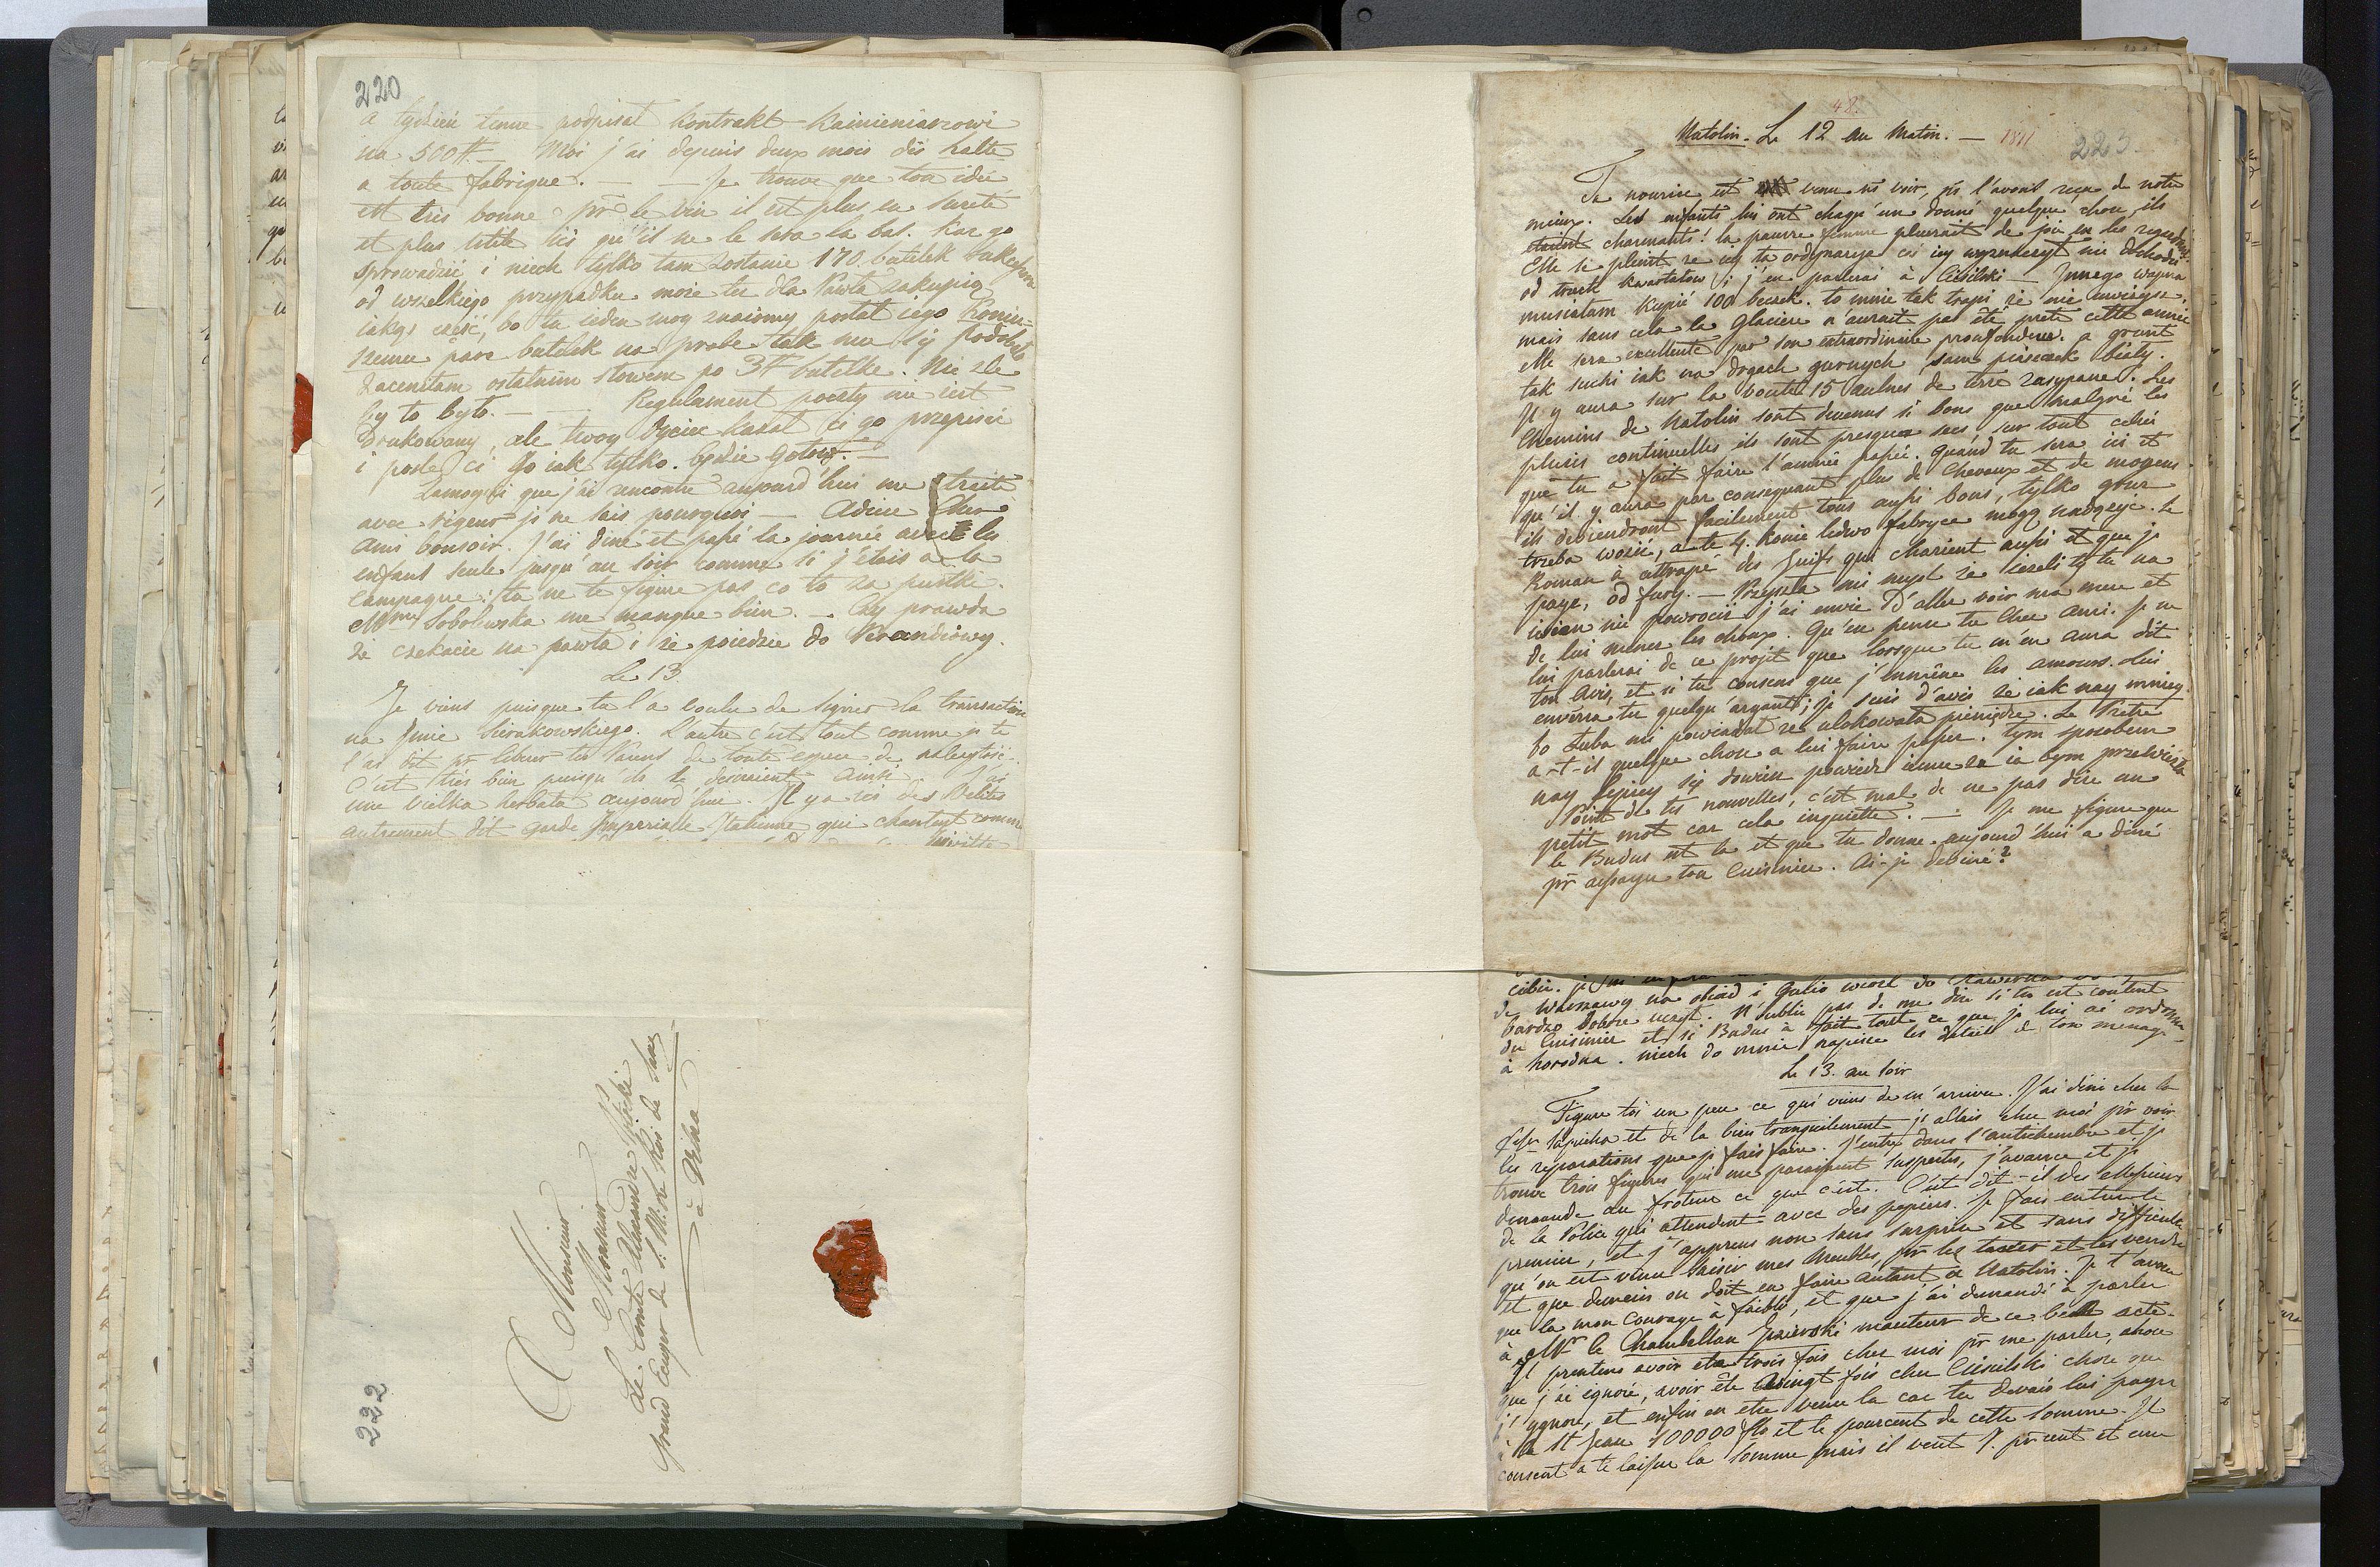 220
a tydzień temu podpisał kontrakt kamieniarzowi
na 500 #. — Moi j'ai depuis deux mois dis halte
a toute fabrique. — — Je trouve que ton idée
est très bonne pr le vin il est plus en sureté
et plus utile ici qu'il ne le sera la bas. Kaz go
sprowadzić i niech tylko tam zostanie 170 butelek
od wszelkiego przypadku może tu dla Pawła zakupią
iaką część, bo tu ieden moy znaiomy posłał iego Koniu=
szemu pare butelek na probe tak mu się podobało
zaceniłam ostatnim słowem po 3# butelke. Nie zle
by to było. — — Regulament poczty nie iest
drukowany, ale twoy Oyciec kazał ci go przepisać
i posle ci go iak tylko będzie gotow. —
Zamoyski que j'ai rencontré aujourd'hui me traite
avec rigeur je ne sais pourquoi — Adieu Cher
Ami bonsoir. J'ai diné et passé la journée avec les
enfans seule jusqu'au soir comme si j'étais a la
Campagne: tu ne te figure pas co to za pustki.
Mme Sobolewska me manque bien. — Czy prawda
ze czekacie na pawła i ze poiedzie do
Le 13.
Je viens puisque tu l'a voulu de signer la transaction
na Imie Sierakowskiego. L'autre c'est tout comme je te
l'ai dit pr liberer tes Biens de toute espece de należytość.
C'est très bien puisqu'ils le desiraient ainsi. J'ai
une wielka herbata aujourd'hui. Il y a ici des Velites
autrement dit garde Imperialle Italienne qui chantent comme
A Monsieur
Monsieur
Le Comte Alexandre Potocki
Grand Ecuyer de S. M. le Roi de Saxe
à Vilna
222
48.
Natolin. Le 12 au Matin. — 1811
223
Ta nourice est venu ns voir, ns l'avons reçu de notre
mieux. Les enfants lui ont chaqu'un donné quelque chose, ils
etaient charmants! la pauvre femme pleurait de joie en les regardant.
Elle se pleint ze iey ta ordynarya coś iey wyznaczył nie dochodzi
od trzech kwartałow; j'en parlerai à Cieśilski — Innego wapna
musiałam kupić 100 beczek. to mnie tak trapi ze nie uwierzysz,
mais sans cela la glaciere n'aurait pas été prete cette année
elle sera excellente par son extraordinaire proufondeur. a grunt
tak suchi iak na drogach gurnych, sam piaseczek biały.
Il y aura sur la voute 15 aulnes de terre zasypane. Les
Chemins de Natolin sont devenus si bons que malgré les
pluies continuelles ils sont presque secs, sur tout celui
que tu a fait faire l'année passée. Quand tu sera ici et
qu'il y aura par consequant plus de Chevaux et de moyens
ils deviendront facilement tous aussi bons, tylko gruz
trzeba wozić, a te 4 konie ledwo fabryce mogą nadążyć. Le
Roman à attrapé des Juifs qui charient aussi et que je
paye, od fury. — Przyszła mi myśl ze iezeli ty tu na
iesien nie powrocisz j'ai envie d'aller voir ma mere et
de lui mener les choux. Qu'en pense tu cher ami. Je ne
lui parlerai de ce projet que lorsque tu m'en aura dit
ton avis, et si tu consens que j'emmène les amours. Lui
enverra tu quelqu'argent; je suis d'avis ze iak nay mniey
bo Luba mi powiadał ze ulokowała pieniądze. Le Pretre
a-t-il quelque chose a lui faire passer. tym sposobem
nay lepiey się dowiem powiedz iemu ze ia bym przewiozła
Point de tes nouvelles, c'est mal de ne pas dire un
petit mot car cela inquiette. — Je me figure que
le Budus est la et que tu donne aujourd'hui a diné
pr essayer ton Cuisinier. Ai-je deviné?
de Warszawy na obiad i
bardzo dobrze uczył. N'oublie pas de me dire si tu est content
du Cuisinier et si Budus à fait tout ce que je lui ai ordonné
à horodna. niech do mnie napisze les details de ton menage
Le 13. au soir
Figure toi un peu ce qui viens de m'arriver. J'ai diné chez la
Psse Sapieha et de la bien tranquilement j'allais chez moi pr voir
les reparations que je fais faire. J'entre dans l'antichembre et je
trouve trois figures qui me paraissent suspectes, j'avance et je
demande au froteur ce que c'est. C'est dit-il des Messieurs
de la Police qui attendent avec des papiers. Je fais entrer le
premier, et j'apprens non sans surprise et sans difficulté
qu'on est venu saisir mes Meubles, pr les taxer et les vendre
et que demain on doit en faire autant à Natolin. Je t'avoue
que la mon courage à faibli, et que j'ai demandé à parler
à Mr le Chambellan auteur de ce bell acte.
Il pretens avoir eté trois fois chez moi pr me parler, chose
que j'ai ignoré, avoir été vingt fois chez Cieśilski chose que
j'ygnore, et enfin en etre venu la car tu devais lui payer
à la St Jean 100000 fls et le pourcent de cette somme. Il
consent a te laisser la somme mais il veut 7. prcent et une